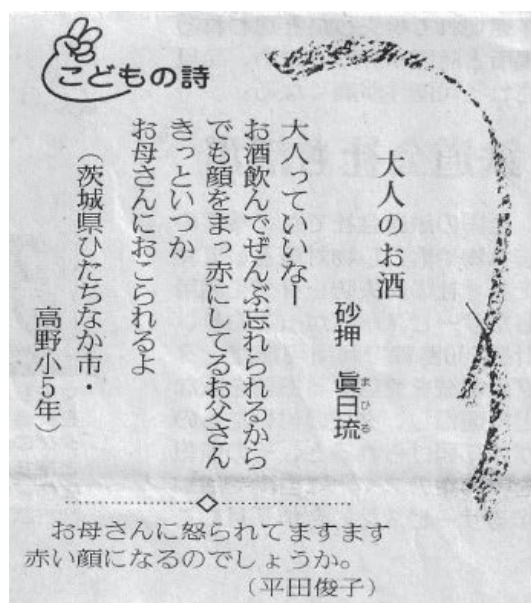 こどもの詩
大人のお酒
砂押 眞日琉
まひる
大人っていいなー
お酒飲んでぜんぶ忘れられるから
でも顔をまっ赤にしてるお父さん
きっといつか
お母さんにおこられるよ
（茨城県ひたちなか市・
高野小５年）
お母さんに怒られてますます
赤い顔になるのでしょうか。
（平田俊子）